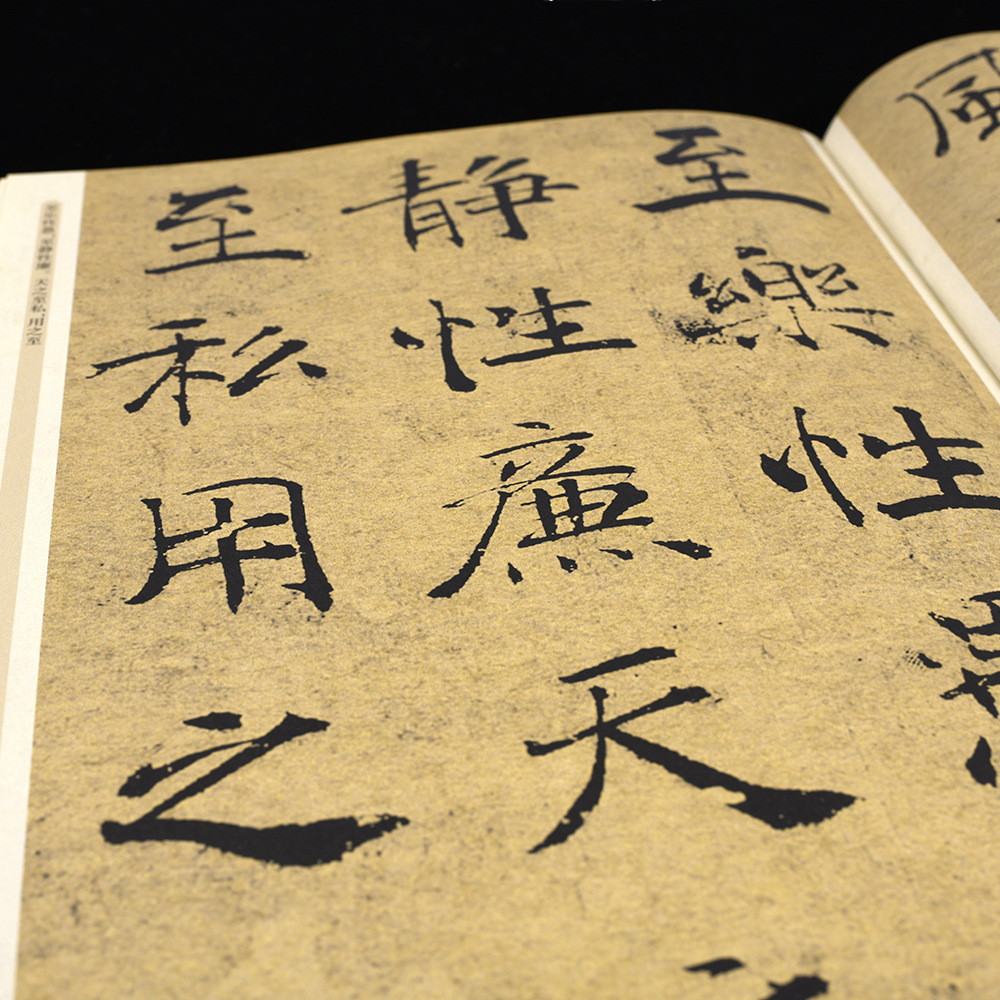 風
至樂性
靜性廉天
至私用之
至静性廉 天之至私,用之至